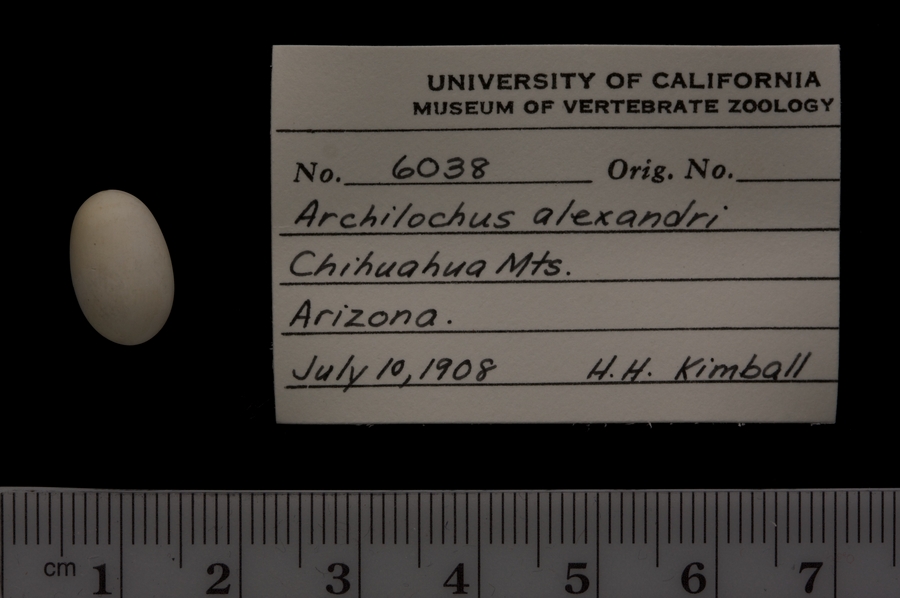 UNIVERSITY OF CALIFORNIA
MUSEUM OF VERTEBRATE ZOOLOGY
No. 6038 Orig. No.
Archilochus alexandri
Chihuahua Mts.
Arizona.
July 10, 1908 H.H. Kimball
cm 1 2 3 4 5 6 7